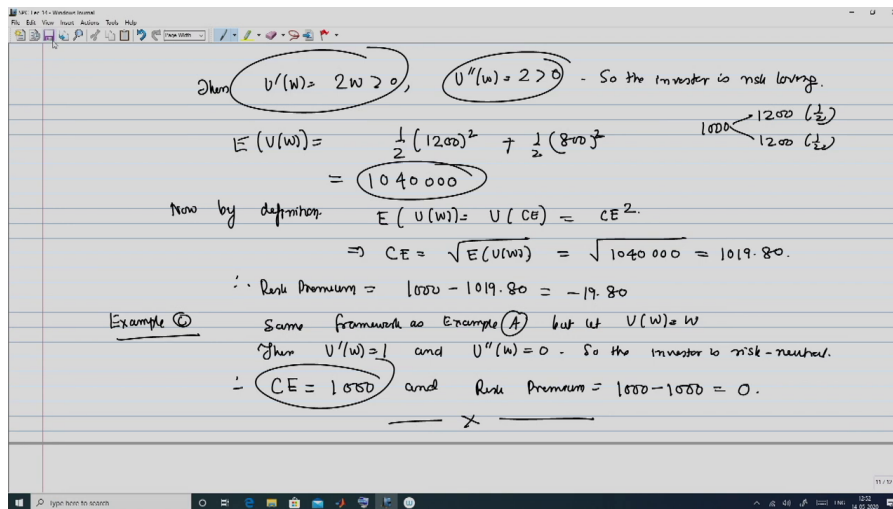 SPC Lec 14 - Windows Journal
File Edit View Insert Actions Tools Help
Page Width
Then U'(W) = 2W > 0, U''(W) = 2 > 0 - So the investor is risk loving.
1000 1200 (1/2)
1200 (1/2)
E(U(W)) = 1/2 (1200)² + 1/2 (800)²
= 1040000
Now by definition E(U(W)) = U(CE) = CE².
⇒ CE = √E(U(W)) = √1040000 = 1019.80.
∴ Risk Premium = 1000 - 1019.80 = -19.80
Example C Same framework as Example A but let U(W) = W
Then U'(W) = 1 and U''(W) = 0 - So the investor is risk-neutral.
∴ CE = 1000 and Risk Premium = 1000 - 1000 = 0.
X
11 / 12
Type here to search
ENG
12:52
14-05-2020